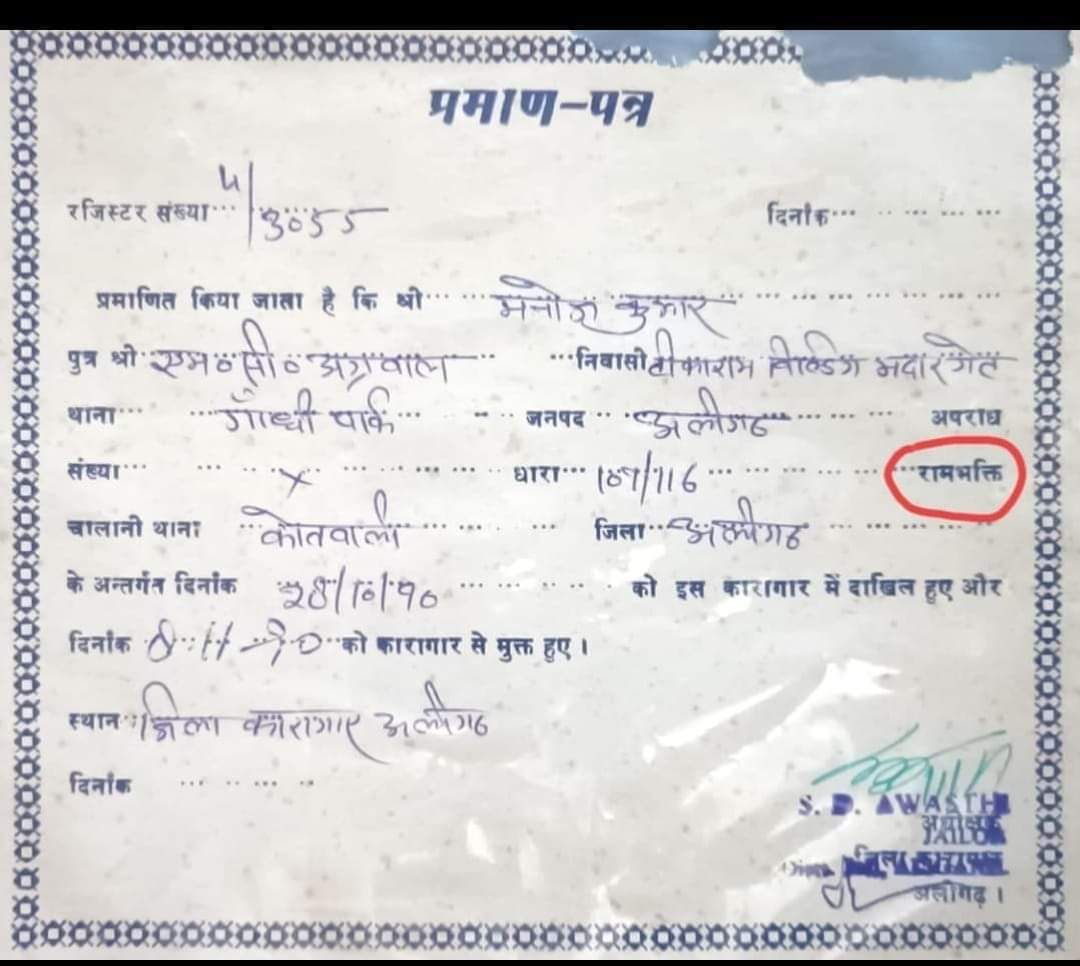 प्रमाण-पत्र
रजिस्टर संख्या 4/3055 दिनांक
प्रमाणित किया जाता है कि श्री मनोज कुमार
पुत्र श्री एम० सी० अग्रवाल निवासी टीकाराम बिल्डिंग मदारगेट
थाना गाँधी पार्क जनपद अलीगढ अपराध
संख्या × धारा 107/116 रामभक्ति
चालानी थाना कोतवाली जिला अलीगढ
के अन्तर्गत दिनांक 28/10/90 को इस कारागार में दाखिल हुए और
दिनांक 8-11-90 को कारागार से मुक्त हुए ।
स्थान जिला कारागार अलीगढ
दिनांक
S. D. AWASTHI
अधीक्षक
JAILOR
जिला कारागार
अलीगढ़ ।